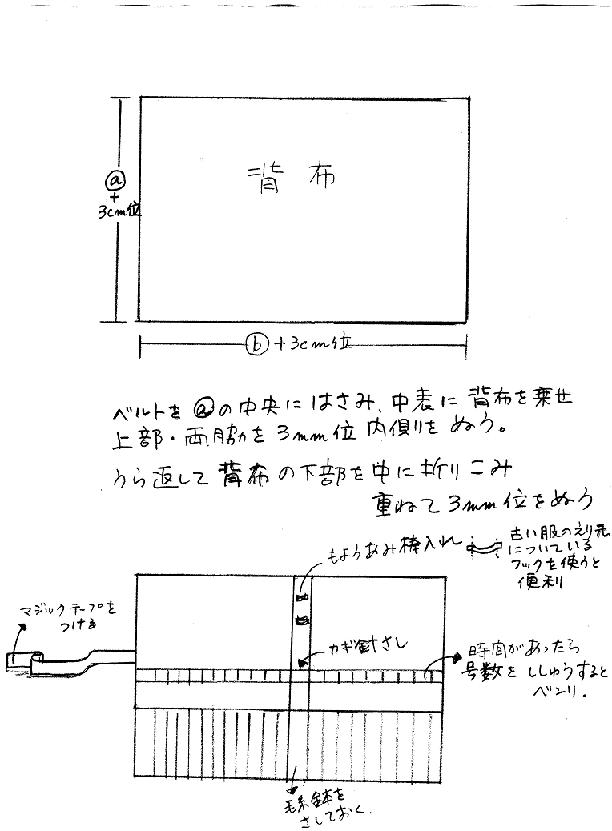 背布
ⓐ
+
3cm位
ⓑ+3cm位
ベルトを ⓐの中央に はさみ、中表に 背布を乗せ
上部・両脇を 3mm位 内側を ぬう。
うら返して 背布の下部を中に折りこみ
重ねて3mm位をぬう
もようあみ棒入れ
古い服のえり元
についている
フックを使うと
便利
マジックテープを
つける
カギ針さし
時間があったら
号数を ししゅうすると
ベンリ。
毛糸針を
さしておく